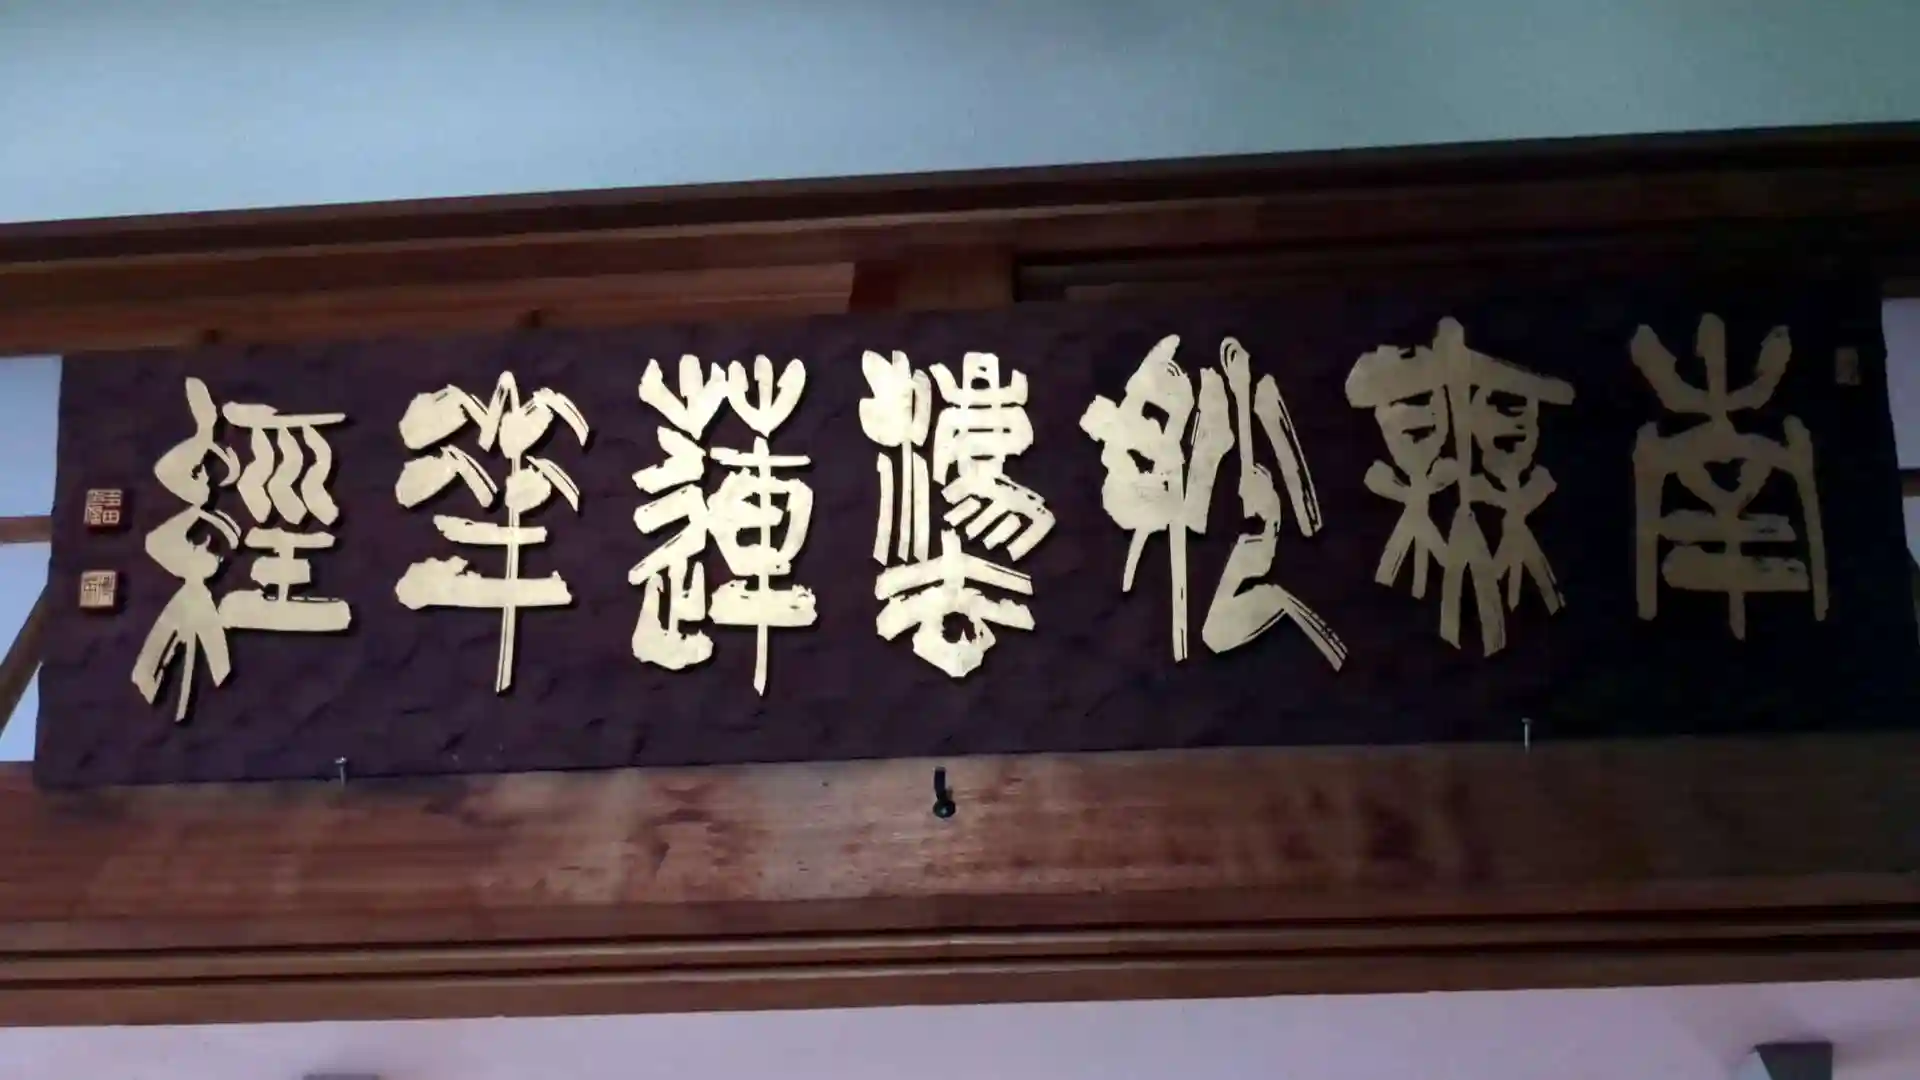 南無妙灋蓮華經